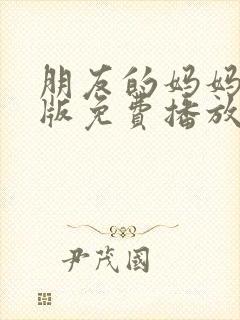 朋友的妈妈
版免费播放
尹茂國